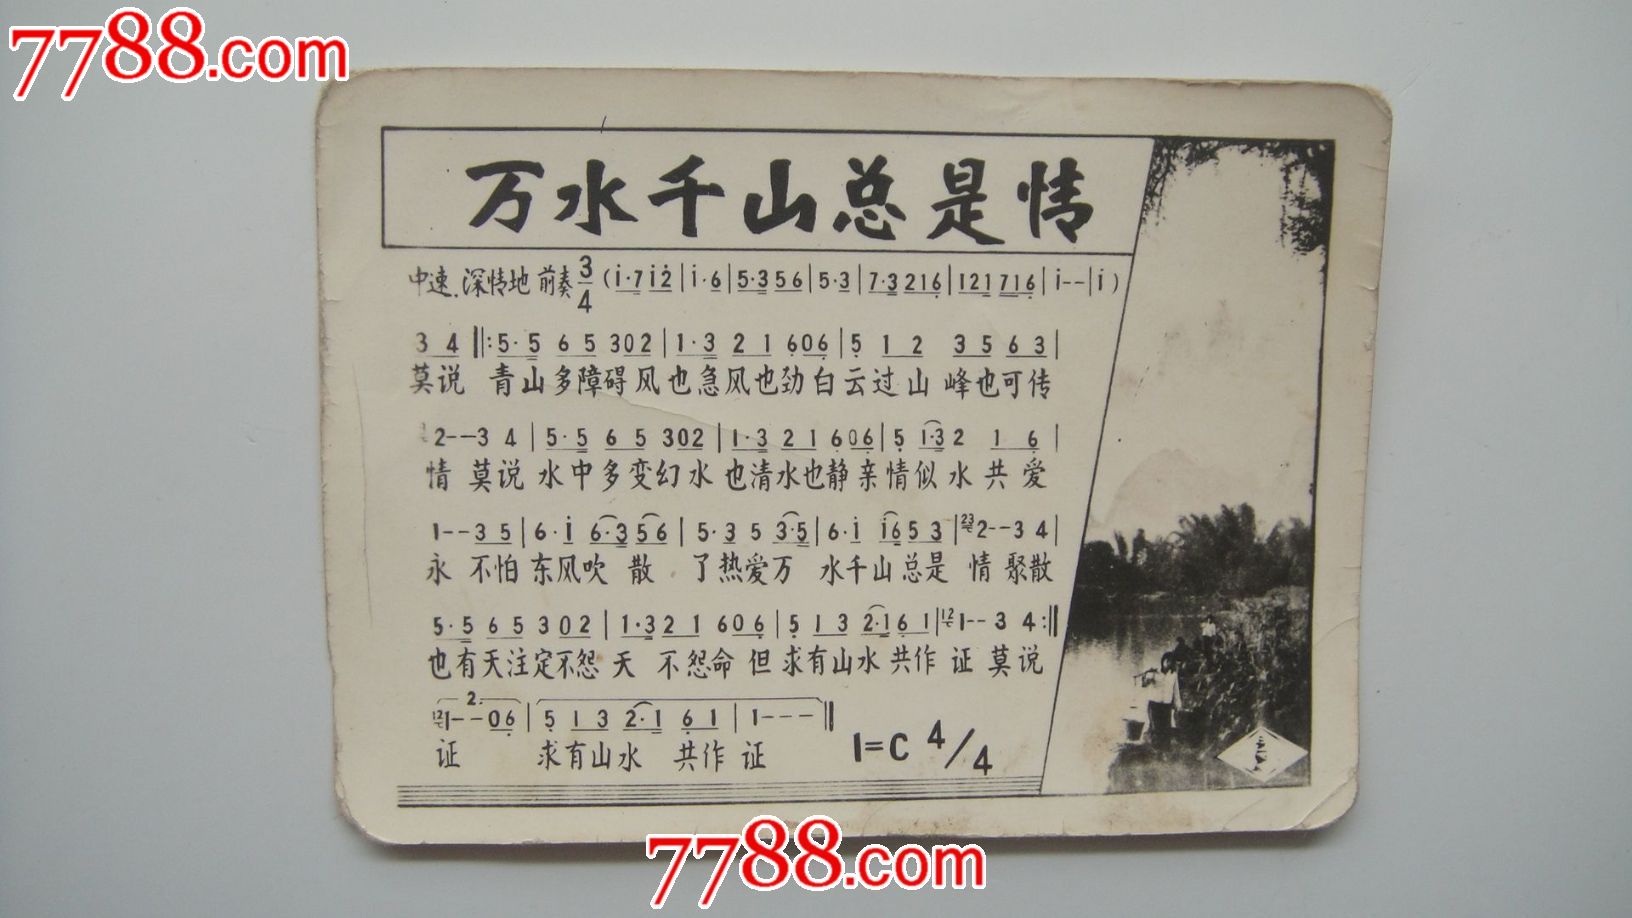 7788.com
万水千山总是情
中速.深情地 前奏 3/4 (i·7i2|i·6|5·356|5·3|7·3216|121716|i--|i)
3 4 ‖:5·5 6 5 302|1·3 2 1 606|5 1 2 3 5 6 3|
莫说 青山多障碍风也急风也劲白云过山峰也可传
2--3 4|5·5 6 5 302|1·3 2 1 606|5 1·3 2 1 6|
情 莫说 水中多变幻水也清水也静亲情似水共爱
1--3 5|6·i 6·3 5 6|5·3 5 3·5|6·i i6 5 3|23 2--3 4|
永 不怕东风吹散 了热爱万 水千山总是 情 聚散
5·5 6 5 3 02|1·3 2 1 606|5 1 3 2·1 6 1|12 1--3 4:‖
也有天注定不怨 天 不怨命 但求有山水共作 证 莫说
2.
12 1--06|5 1 3 2·1 6 1|1---‖
证 求有山水 共作 证
1=C 4/4
7788.com